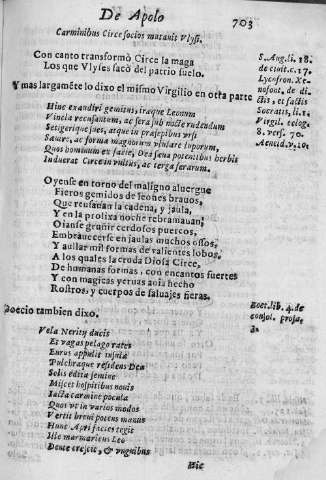 De Apolo
703
Carminibus Circe socios mutauit Vlyssi.
Con canto transformò Circe la maga
Los que Vlyses sacò del patrio suelo.
Y mas largaméte lo dixo el mismo Virgilio en otra parte
Hinc exaudiri gemitus, iraque Leonum
Vincla recusantum, ac sera sub nocte rudendum
Setigerique sues, atque in præsepibus vrsi
Sæuire, ac formæ magnorum vlulare luporum,
Quos hominum ex facie, Dea sæua potentibus herbis
Induerat Circe in vultus, ac terga ferarum.
Oyense en torno del maligno aluergue
Fieros gemidos de leones brauos,
Que reusauan la cadena, y jaula,
Y en la prolixa noche rebramauan;
Oianse gruñir cerdosos puercos,
Embrauecerse en jaulas muchos ossos,
Y aullar mil formas de valientes lobos,
A los quales la cruda Diosa Circe,
De humanas formas, con encantos fuertes
Y con magicas yeruas auia hecho
Rostros, y cuerpos de saluajes fieras.
Boecio tambien dixo.
Vela Neritij ducis
Et vagas pelago rates
Eurus appulit insula
Pulchraque residens Dea
Solis edita semine
Miscet hospitibus nouis
Tacta carmine pocula
Quos vt in varios modos
Vertit herbi potens manus
Hunc Apri facies tegit
Ille marmaricus Leo
Dente crescit, & vnguibus
Hic
S. Aug. li. 18.
de ciuit. c. 17.
Lycofron. Xe-
nofont. de di-
ctis, et factis
Socratis, li. 1.
Virgil. eclog.
8. vers. 70.
Aeneid. v. 10.
Boet. lib. 4. de
consol. prosa,
3.